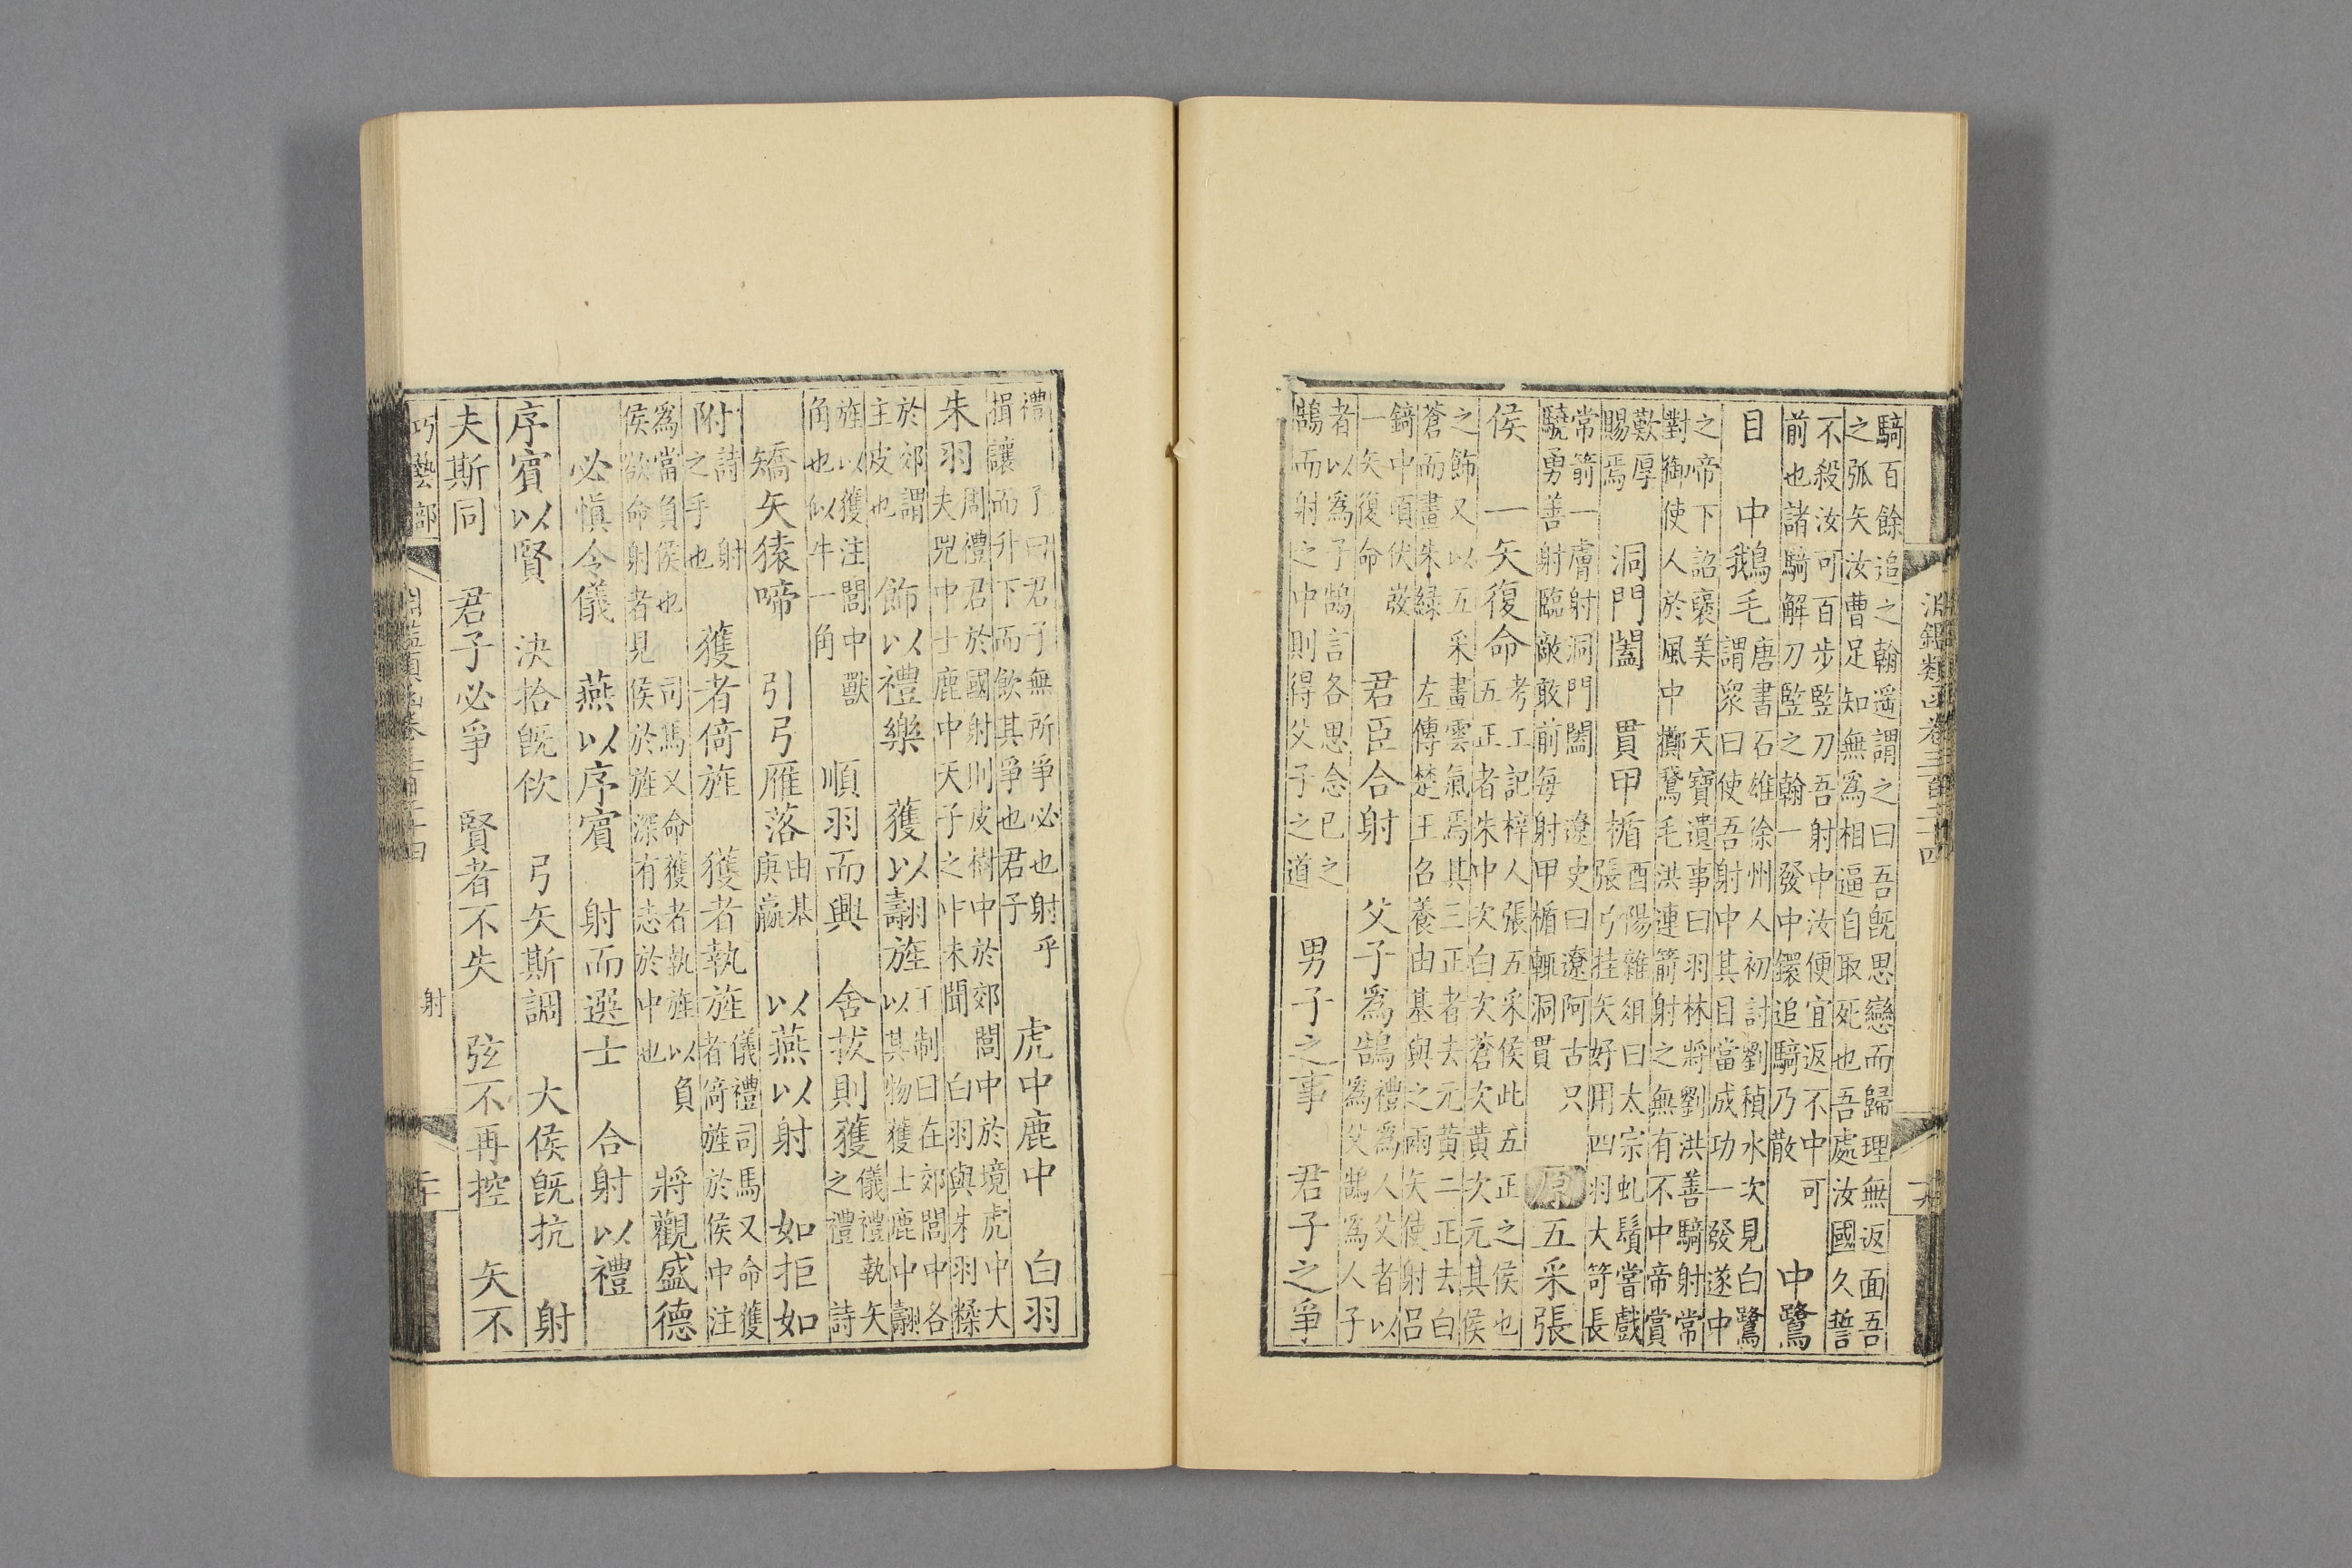 淵鑑類函卷三百二十四 十九
騎百餘追之翰遥謂之曰吾旣思戀而歸理無返面吾
之弧矢汝曹足知無爲相逼自取死也吾處汝國久誓
不殺汝可百步監刀吾射中汝便宜返不中可
前也諸騎解刀監之翰一發中鐶追騎乃散 中鷺
目 中鵝毛 唐書石雄徐州人初討劉稹水次見白鷺
謂衆曰使吾射中其目當成功一發遂中
之帝下詔褒美 天寶遺事曰羽林將劉洪善騎射常
對御使人於風中擲鵞毛洪連箭射之無有不中帝賞
歎厚
賜焉 洞門闔 貫甲楯 酉陽雜俎曰太宗虬鬚嘗戲
張弓挂矢好用四羽大笴長
常箭一膚射洞門闔 遼史曰遼阿古只
驍勇善射臨敵敢前每射甲楯輒洞貫 原 五采張
侯 一矢復命 考工記梓人張五采侯此五正之侯也
五正者朱中次白次蒼次黃次元其侯
之飾又以五采畫雲氣焉其三正者去元黃二正去白
蒼而畫朱緑 左傳楚王召養由基與之兩矢使射呂
錡中項伏弢
一矢復命 君臣合射 父子爲鵠 禮爲人父者以
爲父鵠爲人子
者以爲子鵠言各思念已之
鵠而射之中則得父子之道 男子之事 君子之爭
禮 了曰君子無所爭必也射乎
揖讓而升下而飲其爭也君子 虎中鹿中 白羽
朱羽 周禮君於國射則皮樹中於郊閭中於境虎中大
夫兕中士鹿中天子之中未聞 白羽與朱羽糅
於郊謂
主皮也 飾以禮樂 獲以翿旌 王制曰在郊閭中各
以其物獲士鹿中翿
旌以獲注閭中獸
角也似牛一角 順羽而興 舍拔則獲 儀禮執矢
之禮詩
矯矢猿啼 引弓雁落 由基
庚嬴 以燕以射 如拒如
附 詩射
之乎也 獲者倚旌 獲者執旌 儀禮司馬又命獲
者倚旌於侯中注
爲當負侯也 司馬又命獲者執旌以負
侯欲命射者見侯於旌深有志於中也 將觀盛德
必慎令儀 燕以序賓 射而選士 合射以禮
序賓以賢 決拾旣佽 弓矢斯調 大侯旣抗 射
夫斯同 君子必爭 賢者不失 弦不再控 矢不
巧藝部 淵鑑類函卷三百二十四 射 二十